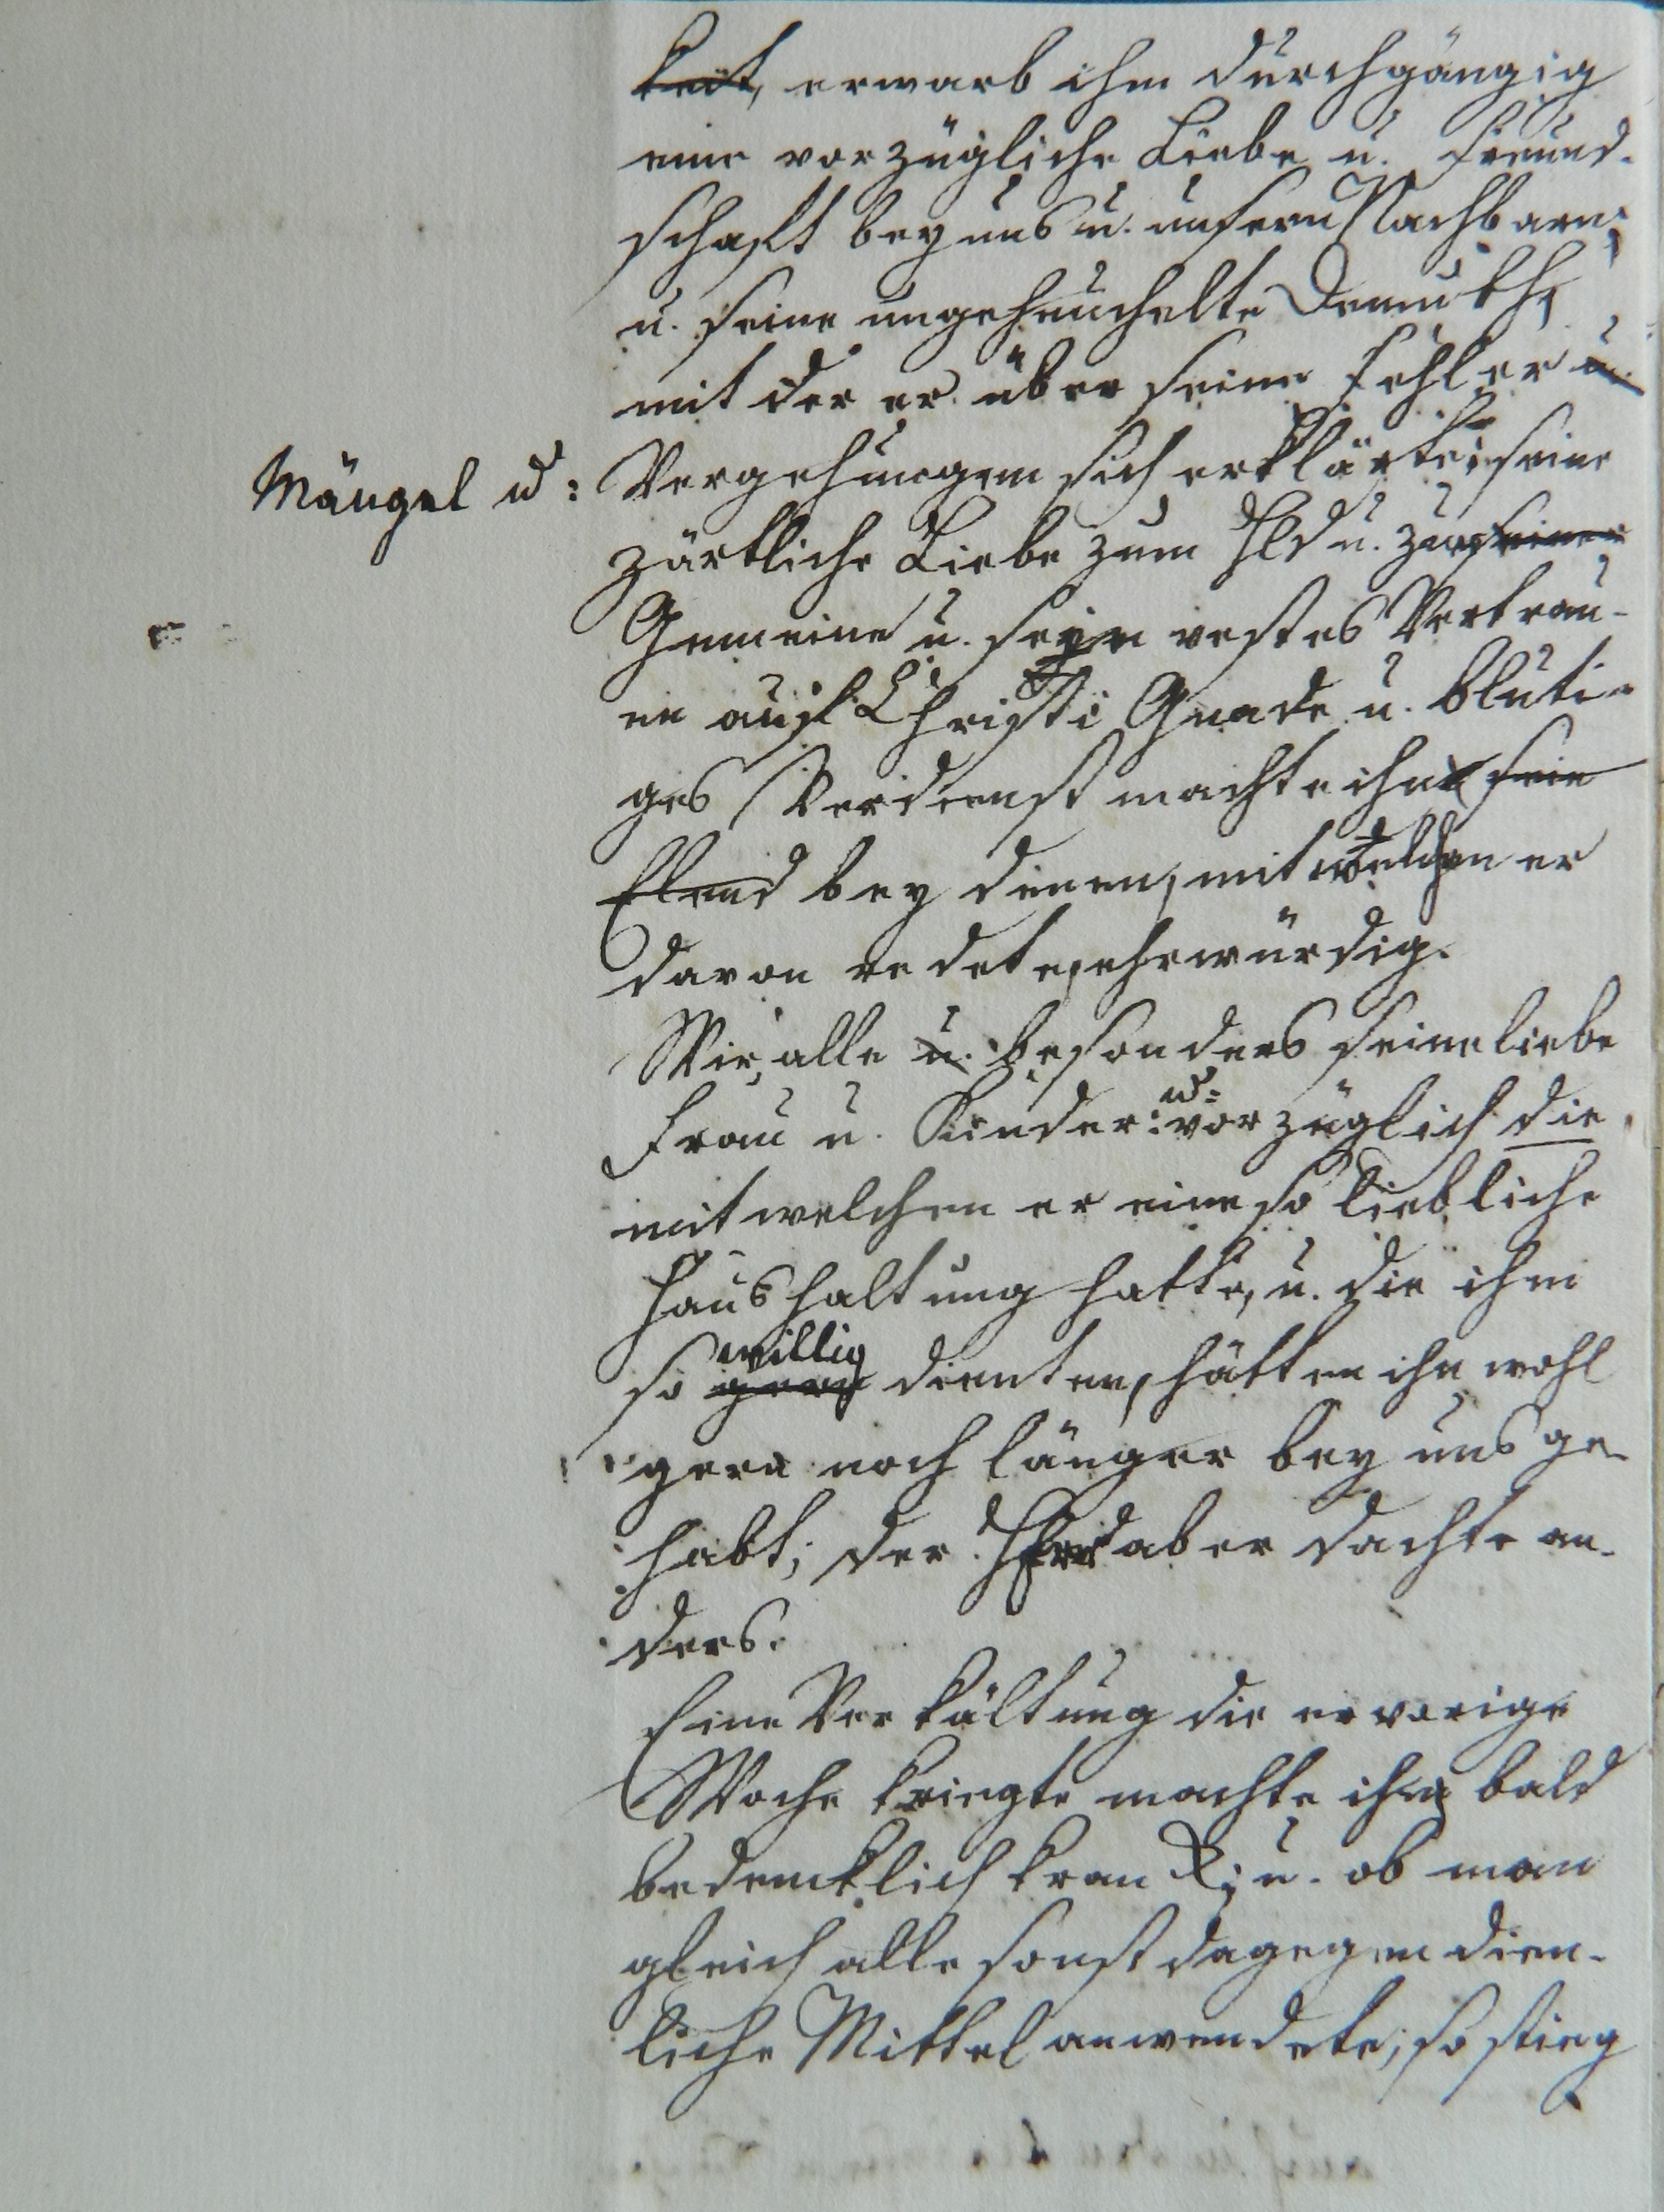 keit, erwarb ihm durchgängig
eine vorzügliche Liebe u. Freund-
schaft bey uns u. unsern Nachbarn;
u. seine ungeheuchelte Demuth,
mit der er über seine Fehler u.
Mängel u: Vergehungen sich erklärte; seine
zärtliche Liebe zum Hld u. zur seiner
Gemeine u. sein vestes Vertrau-
en auf Christi Gnade u. bluti-
ges Verdienst machte ihn sein
Elend bey denen, mit welchen er
davon redete, ehrwürdig.
Wir alle u. besonders seine liebe
Frau u. Kinder: u: vorzüglich die
mit welchen er eine so liebliche
Haushaltung hatte, u. die ihm
so gern willig dienten, hätten ihn wohl
gern noch länger bey uns ge-
habt; der aber dachte an-
ders.
Eine Verkältung die er vorige
Woche kriegte machte ihn bald
bedencklich kranck; u. ob man
gleich alle sonst dagegen dien-
liche Mittel anwendete, so stieg